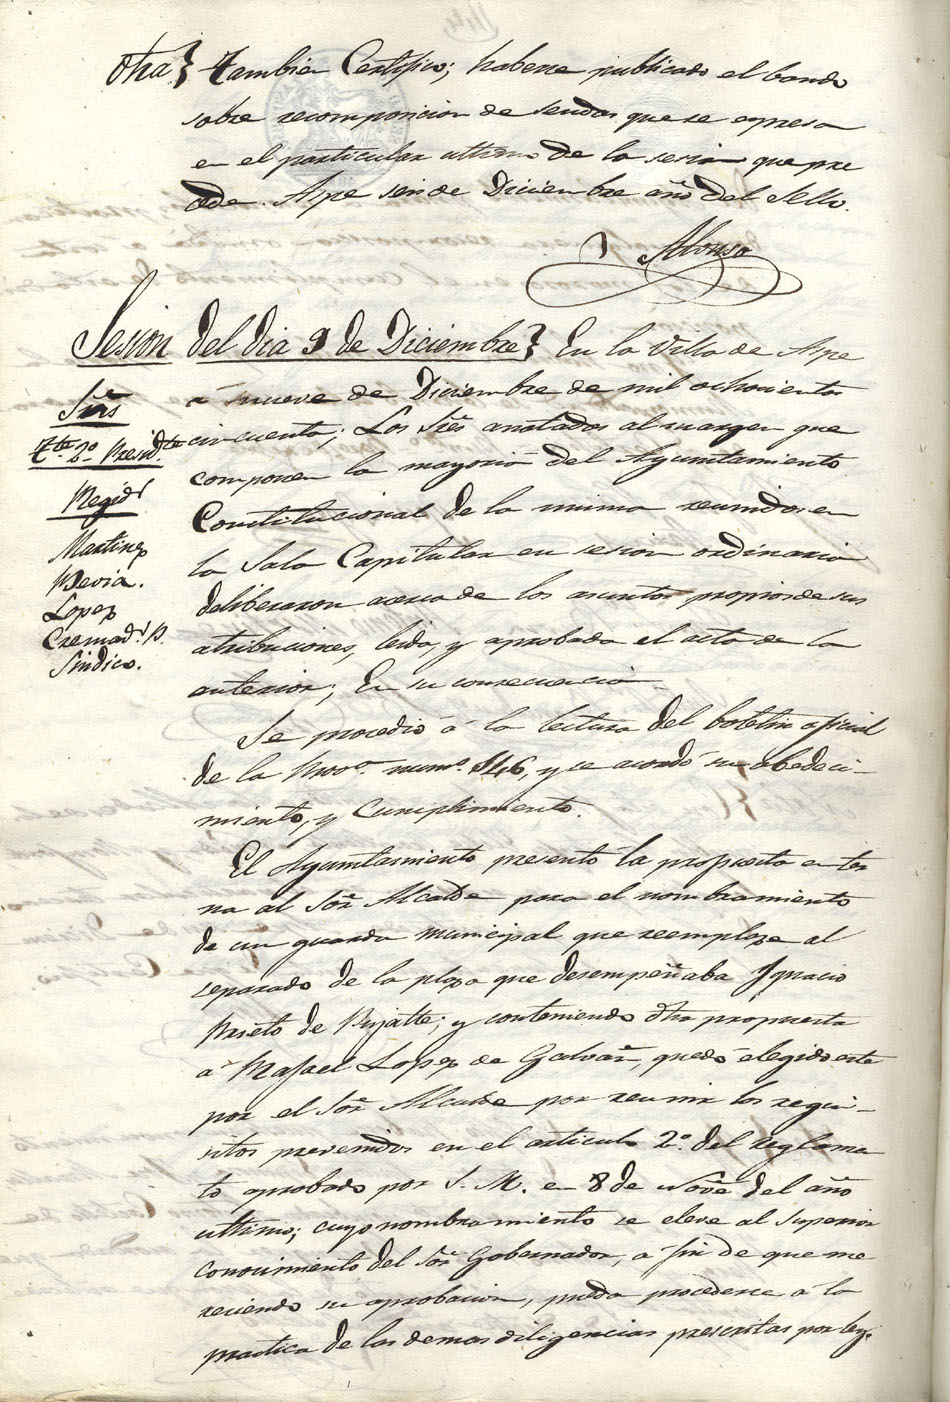 Otra} Tambien Certifico; haberse publicado el bando
sobre recomposicion de sendas que se expresa
en el particular ultimo de la sesion que pre
cede. Aspe seis de Diciembre año del Sello.
Alonso
Sesion del dia 9 de Diciembre} En la Villa de Aspe
á nueve de Diciembre de mil ochocientos
cincuenta; Los Sres anotados al margen que
componen la mayoria del Ayuntamiento
Constitucional de la misma reunidos en
la Sala Capitular en sesion ordinaria
deliberaron acerca de los asuntos propios de sus
atribuciones, leida, y aprobada el acta de la
anterior; En su consecuencia
Sres
Tte 2º Presidte
Regids
Martinez
Mevia.
Lopez
Cremads P.
Sindico.
Se procedió á la lectura del boletin oficial
de la Prova. numo. 146, y se acordó su obedeci-
miento, y cumplimiento.
El Ayuntamiento presentó la propuesta en ter
na al Sor Alcalde para el nombramiento
de un guarda municipal que reemplaze al
separado de la plaza que desempeñaba Ignacio
Prieto de Pujalte; y conteniendo dha propuesta
á Rafael Lopez de Galvañ, quedó elegido este
por el Sor Alcalde por reunir los requi-
sitos prevenidos en el articulo 2º. del reglamen
to aprobado por S. M. en 8 de Nove del año
ultimo; cuyo nombramiento se eleve al Superior
conocimiento del Sor Gobernador, a fin de que me
reciendo su aprobacion, pueda procederse á la
practica de las demas diligencias prescritas por ley.